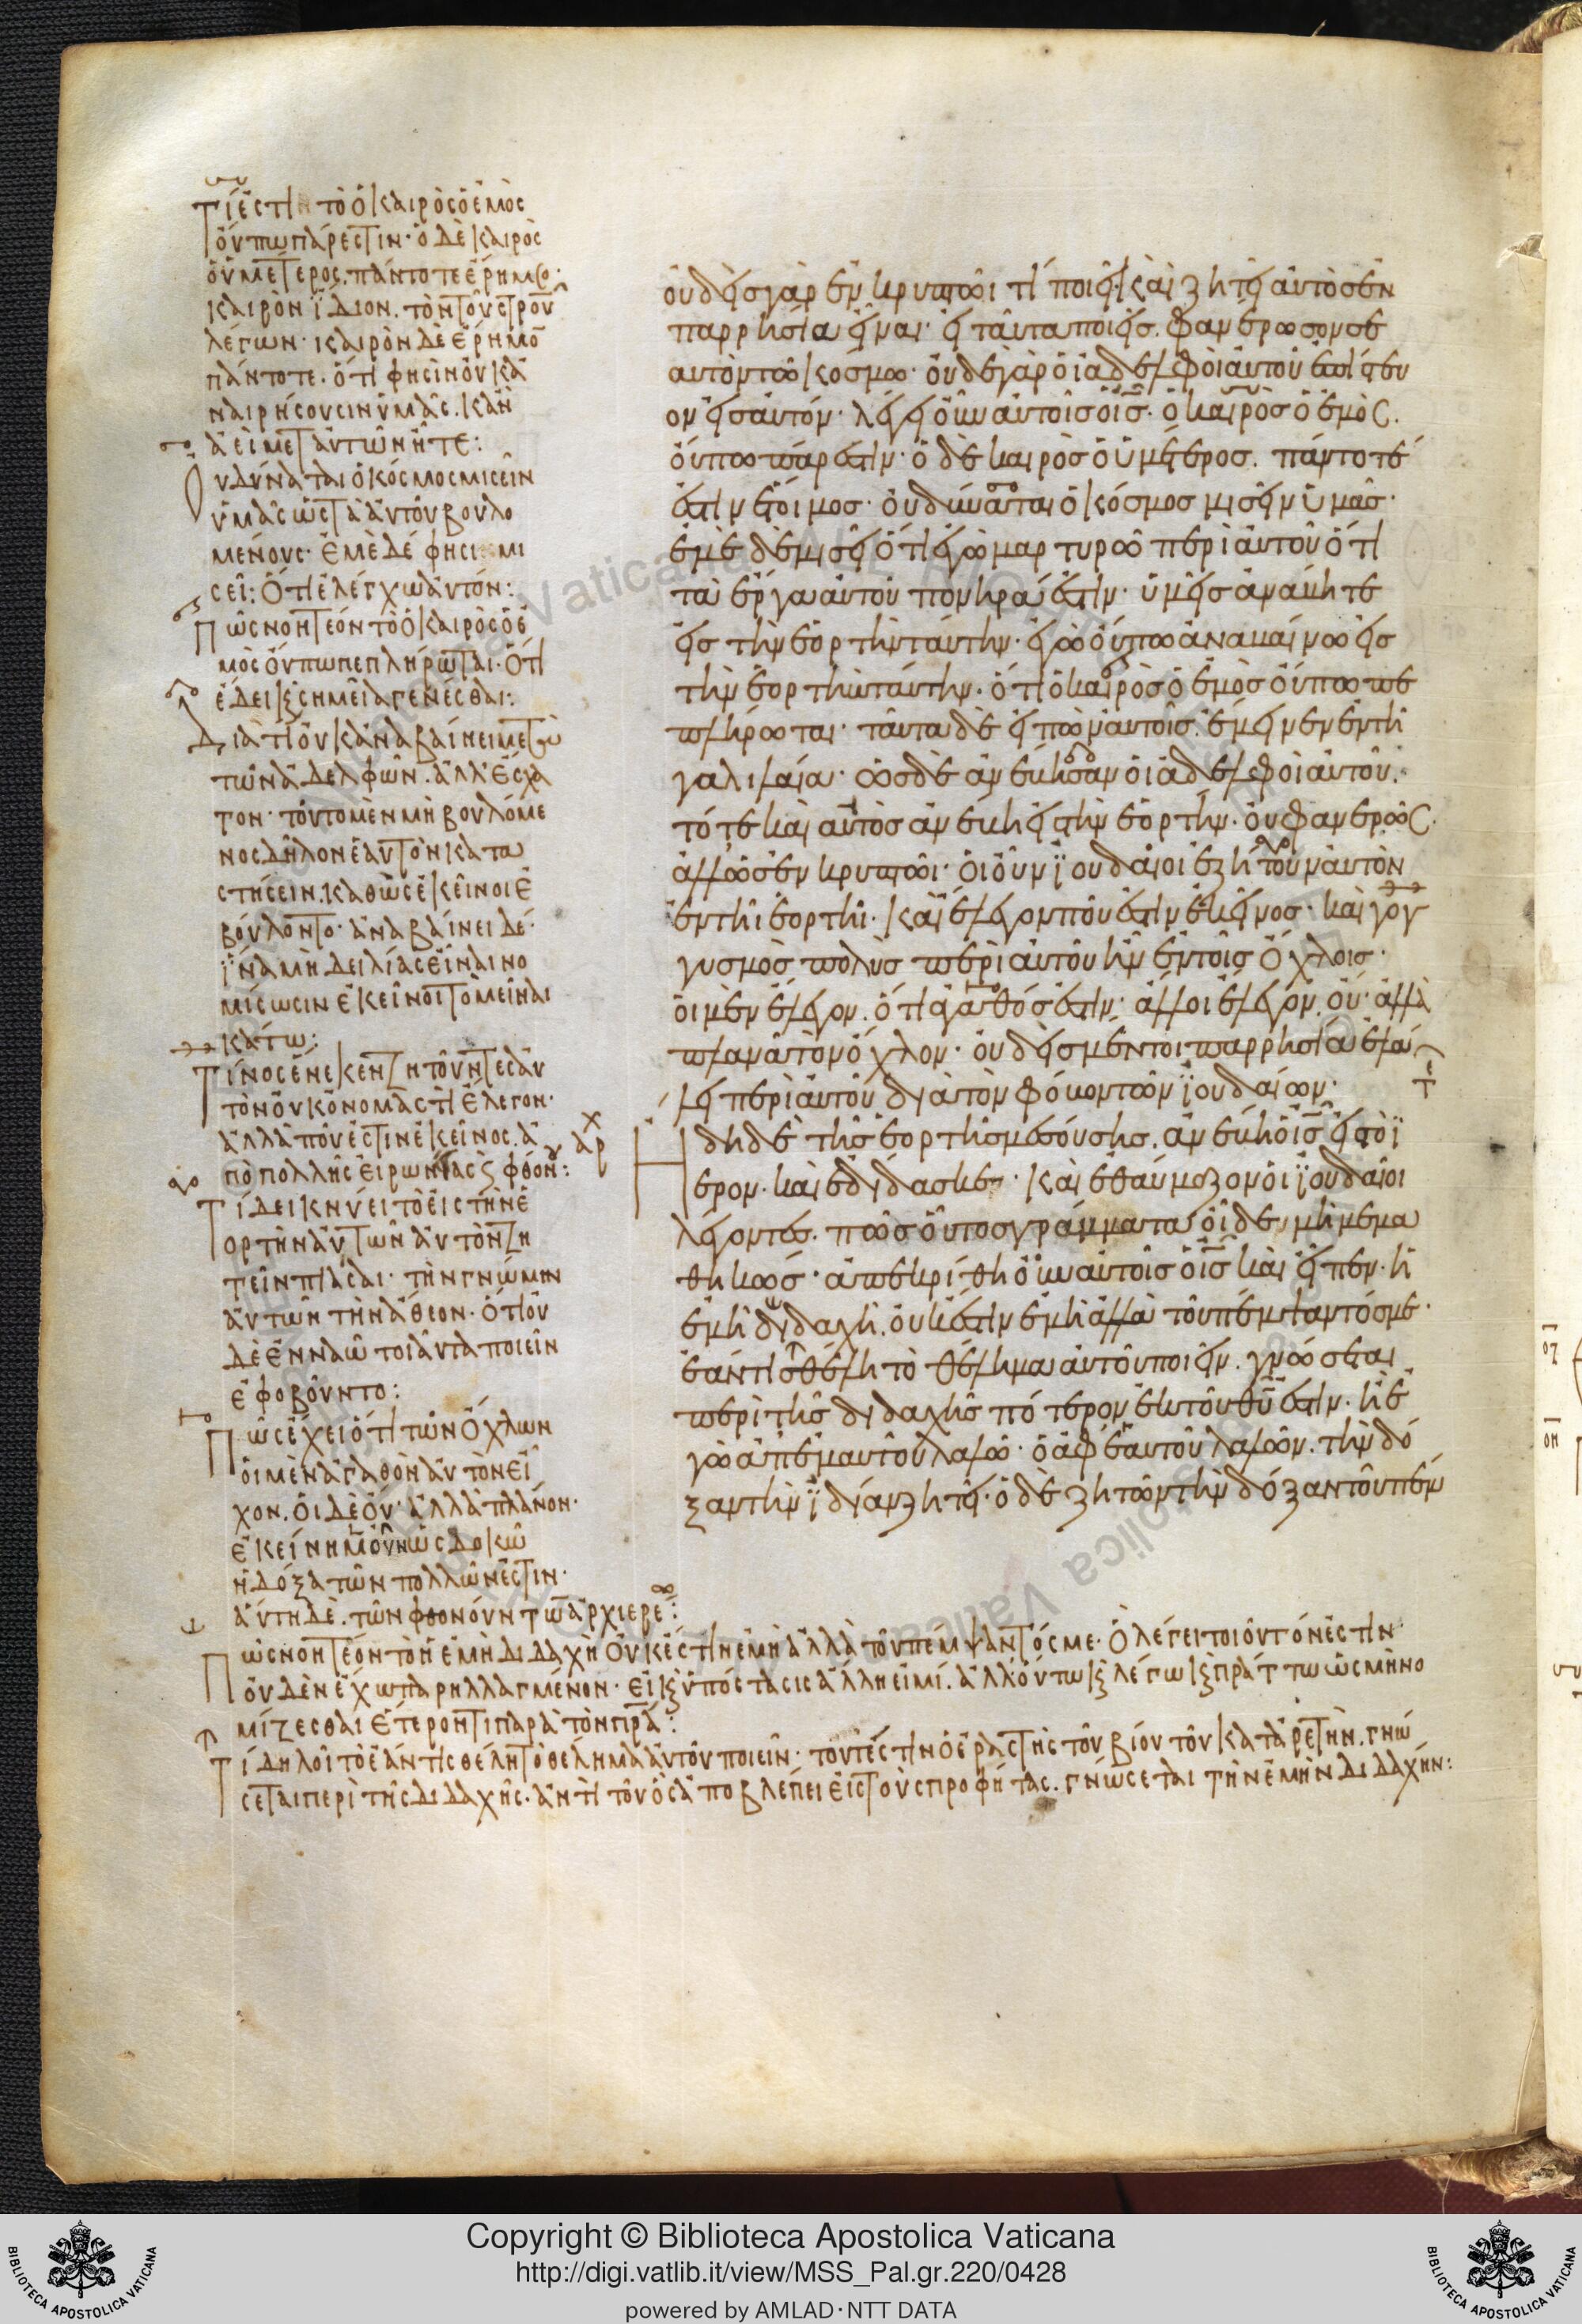 Τί ἐστι τὸ ὁ καιρὸς ὁ ἐμὸς
οὔπω πάρεστιν· ὁ δὲ καιρὸς
ὁ ὑμέτερος πάντοτε
καιρὸν ἴδιον. τὸν τοῦ στρου
λέγων· καιρὸν δὲ
πάντοτε. ὅτι φησιν οὐκ ἀ
ναιρήσουσιν ὑμᾶς. κἂν
ἀεὶ μετ αὐτῶν ἦτε:
Οὐ δύναται ὁ κόσμος μισεῖν
ὑμᾶς ὡς τὰ αὐτοῦ βουλο
μένους· ἐμὲ δέ φησι μι
σεῖ: ὅτι ἐλέγχω αὐτόν:
Πῶς νοητέον τὸ ὁ καιρὸς ὁ ἐ
μὸς οὔπω πεπλήρωται· ὅτι
ἔδει κ σημεῖα γενέσθαι:
Διατί οὐκ ἀναβαίνει μετὰ
τῶν ἀδελφῶν. ἀλλ ἔσχα
τον· τοῦτο μὲν μὴ βουλόμε
νος δῆλον ἑαυτὸν κατα
στήσειν. καθὼς ἐκεῖνοι ἐ
βούλοντο· ἀναβαίνει δέ·
ἵνα μὴ δειλίας εἶναι νο
μίσωσιν ἐκεῖνοι τὸ μεῖναι
κάτω:
Τίνος ἕνεκεν ζητοῦντες αὐ
τὸν οὐκ ὀνομαστὶ ἔλεγον·
ἀλλὰ ποῦ ἐστιν ἐκεῖνος. ἀ
πὸ πολλῆς εἰρωνίας κ φθόν:
Τί δεικνύει τὸ εἰς τὴν ἑ
ορτὴν αὐτῶν αὐτὸν ζη
τεῖν πιάσαι· τὴν γνώμην
αὐτῶν τὴν ἄθεον· ὅτι οὐ
δὲ ἐν ναῶ τοιαῦτα ποιεῖν
ἐφοβοῦντο:
Πῶς ἔχει ὅτι τῶν ὄχλων
οἱ μὲν ἀγαθὸν αὐτὸν εἶ
χον. οἱ δὲ οὔ· ἀλλὰ πλάνον·
ἐκείνη μὲν οὖν ὡς δοκῶ
ἡ δόξα τῶν πολλῶν ἐστιν·
αὕτη δὲ. τῶν φθονούντω ἀρχιερέω:
Πῶς νοητέον τὸ ἡ ἐμὴ διδαχὴ οὐκ ἔστιν ἐμὴ ἀλλὰ τοῦ πέμψαντός με· ὃ λέγει τοιοῦτόν ἐστιν·
οὐδὲν ἔχω παρηλλαγμένον· εἰ κ ὑπόστασις ἄλλη εἰμί. ἀλλ οὕτω κ λέγω κ πράττω ὡς μὴ νο
μίζεσθαι ἕτερόν τι παρὰ τὸν πρα:
Τί δηλοῖ τὸ ἐάν τις θέλη τὸ θέλημα αὐτοῦ ποιεῖν· τουτέστιν ὁ ἐραστὴς τοῦ βίου τοῦ κατ ἀρετὴν. γνώ
σεται περὶ τῆς διδαχῆς· ἀντὶ τοῦ ὃς ἀποβλέπει εἰς τοὺς προφήτας. γνώσεται τὴν ἐμὴν διδαχήν:
οὐδεὶς γὰρ ἐν κρυπτῶι τί ποιεῖ· καὶ ζητεῖ αὐτὸς ἐν
παρρησία εἶναι· εἰ ταῦτα ποιεῖς. φανέρωσον σε
αυτὸν τῶ κόσμω· οὐδὲ γὰρ οἱ ἀδελφοὶ αὐτοῦ ἐπίστευ
ον εἰς αὐτόν· λέγει οὖν αὐτοῖς ὁ ις· ὁ καιρὸς ὁ ἐμὸς.
οὔπω πάρεστιν· ὁ δὲ καιρὸς ὁ ὑμέτερος. πάντοτέ
ἐστιν ἕτοιμος· οὐ δύναται ὁ κόσμος μισεῖν ὑμᾶς·
ἐμὲ δὲ μισεῖ ὅτι ἐγὼ μαρτυρῶ περὶ αὐτοῦ ὅτι
τὰ ἔργα αὐτοῦ πονηρά ἐστιν· ὑμεῖς ἀνάβητε
εἰς τὴν ἑορτὴν ταύτην· ἐγὼ οὔπω ἀναβαίνω εἰς
τὴν ἑορτὴν ταύτην· ὅτι ὁ καιρὸς ὁ ἐμὸς οὔπω πε
πλήρωται· ταῦτα δὲ εἰπὼν αὐτοῖς. ἔμεινεν ἐν τῆ
γαλιλαία· ὡς δὲ ἀνέβησαν οἱ ἀδελφοὶ αὐτοῦ.
τότε καὶ αὐτὸς ἀνέβη εἰς τὴν ἑορτήν· οὐ φανερῶς.
ἀλλ ὡς ἐν κρυπτῶι· οἱ οὖν ϊουδαῖοι ἐζήτουν αὐτὸν
ἐν τῆι ἑορτῆι· καὶ ἔλεγον ποῦ ἐστιν ἐκεῖνος· καὶ γογ
γυσμὸς πολὺς περὶ αὐτοῦ ἦν ἐν τοῖς ὄχλοις·
οἱ μὲν ἔλεγον. ὅτι ἀγαθός ἐστιν· ἄλλοι ἔλεγον. οὔ· ἀλλὰ
πλανᾶ τὸν ὄχλον· οὐδεὶς μέντοι παρρησία ἐλά
λει περὶ αὐτοῦ διὰ τὸν φόβον τῶν ϊουδαίων·
Ηδη δὲ τῆς ἑορτῆς μεσούσης. ἀνέβη ὁ ις εἰς τὸ ϊ
ερον· καὶ ἐδίδασκεν· καὶ ἐθαύμαζον οἱ ϊουδαῖοι
λέγοντες. πῶς οὗτος γράμματα οἶδε μὴ μεμα
θηκώς· ἀπεκρίθη οὖν αὐτοῖς ὁ ις καὶ εἶπεν· ἡ
ἐμὴ διδαχὴ. οὐκ ἔστιν ἐμὴ ἀλλὰ τοῦ πέμψαντός με·
ἐάν τις θέλη τὸ θέλημα αὐτοῦ ποιεῖν. γνώσεται
περὶ τῆς διδαχῆς πότερον ἐκ τοῦ θυ ἐστιν· ἢ ἐ
γὼ ἀπ ἐμαυτοῦ λαλῶ· ὁ ἀφ ἑαυτοῦ λαλῶν. τὴν δό
ξαν τὴν ϊδίαν ζητεῖ· ὁ δὲ ζητῶν τὴν δόξαν τοῦ πέμ
Copyright © Biblioteca Apostolica Vaticana
http://digi.vatlib.it/view/MSS_Pal.gr.220/0428
powered by AMLAD·NTT DATA
BIBLIOTECA APOSTOLICA VATICANA
BIBLIOTECA APOSTOLICA VATICANA